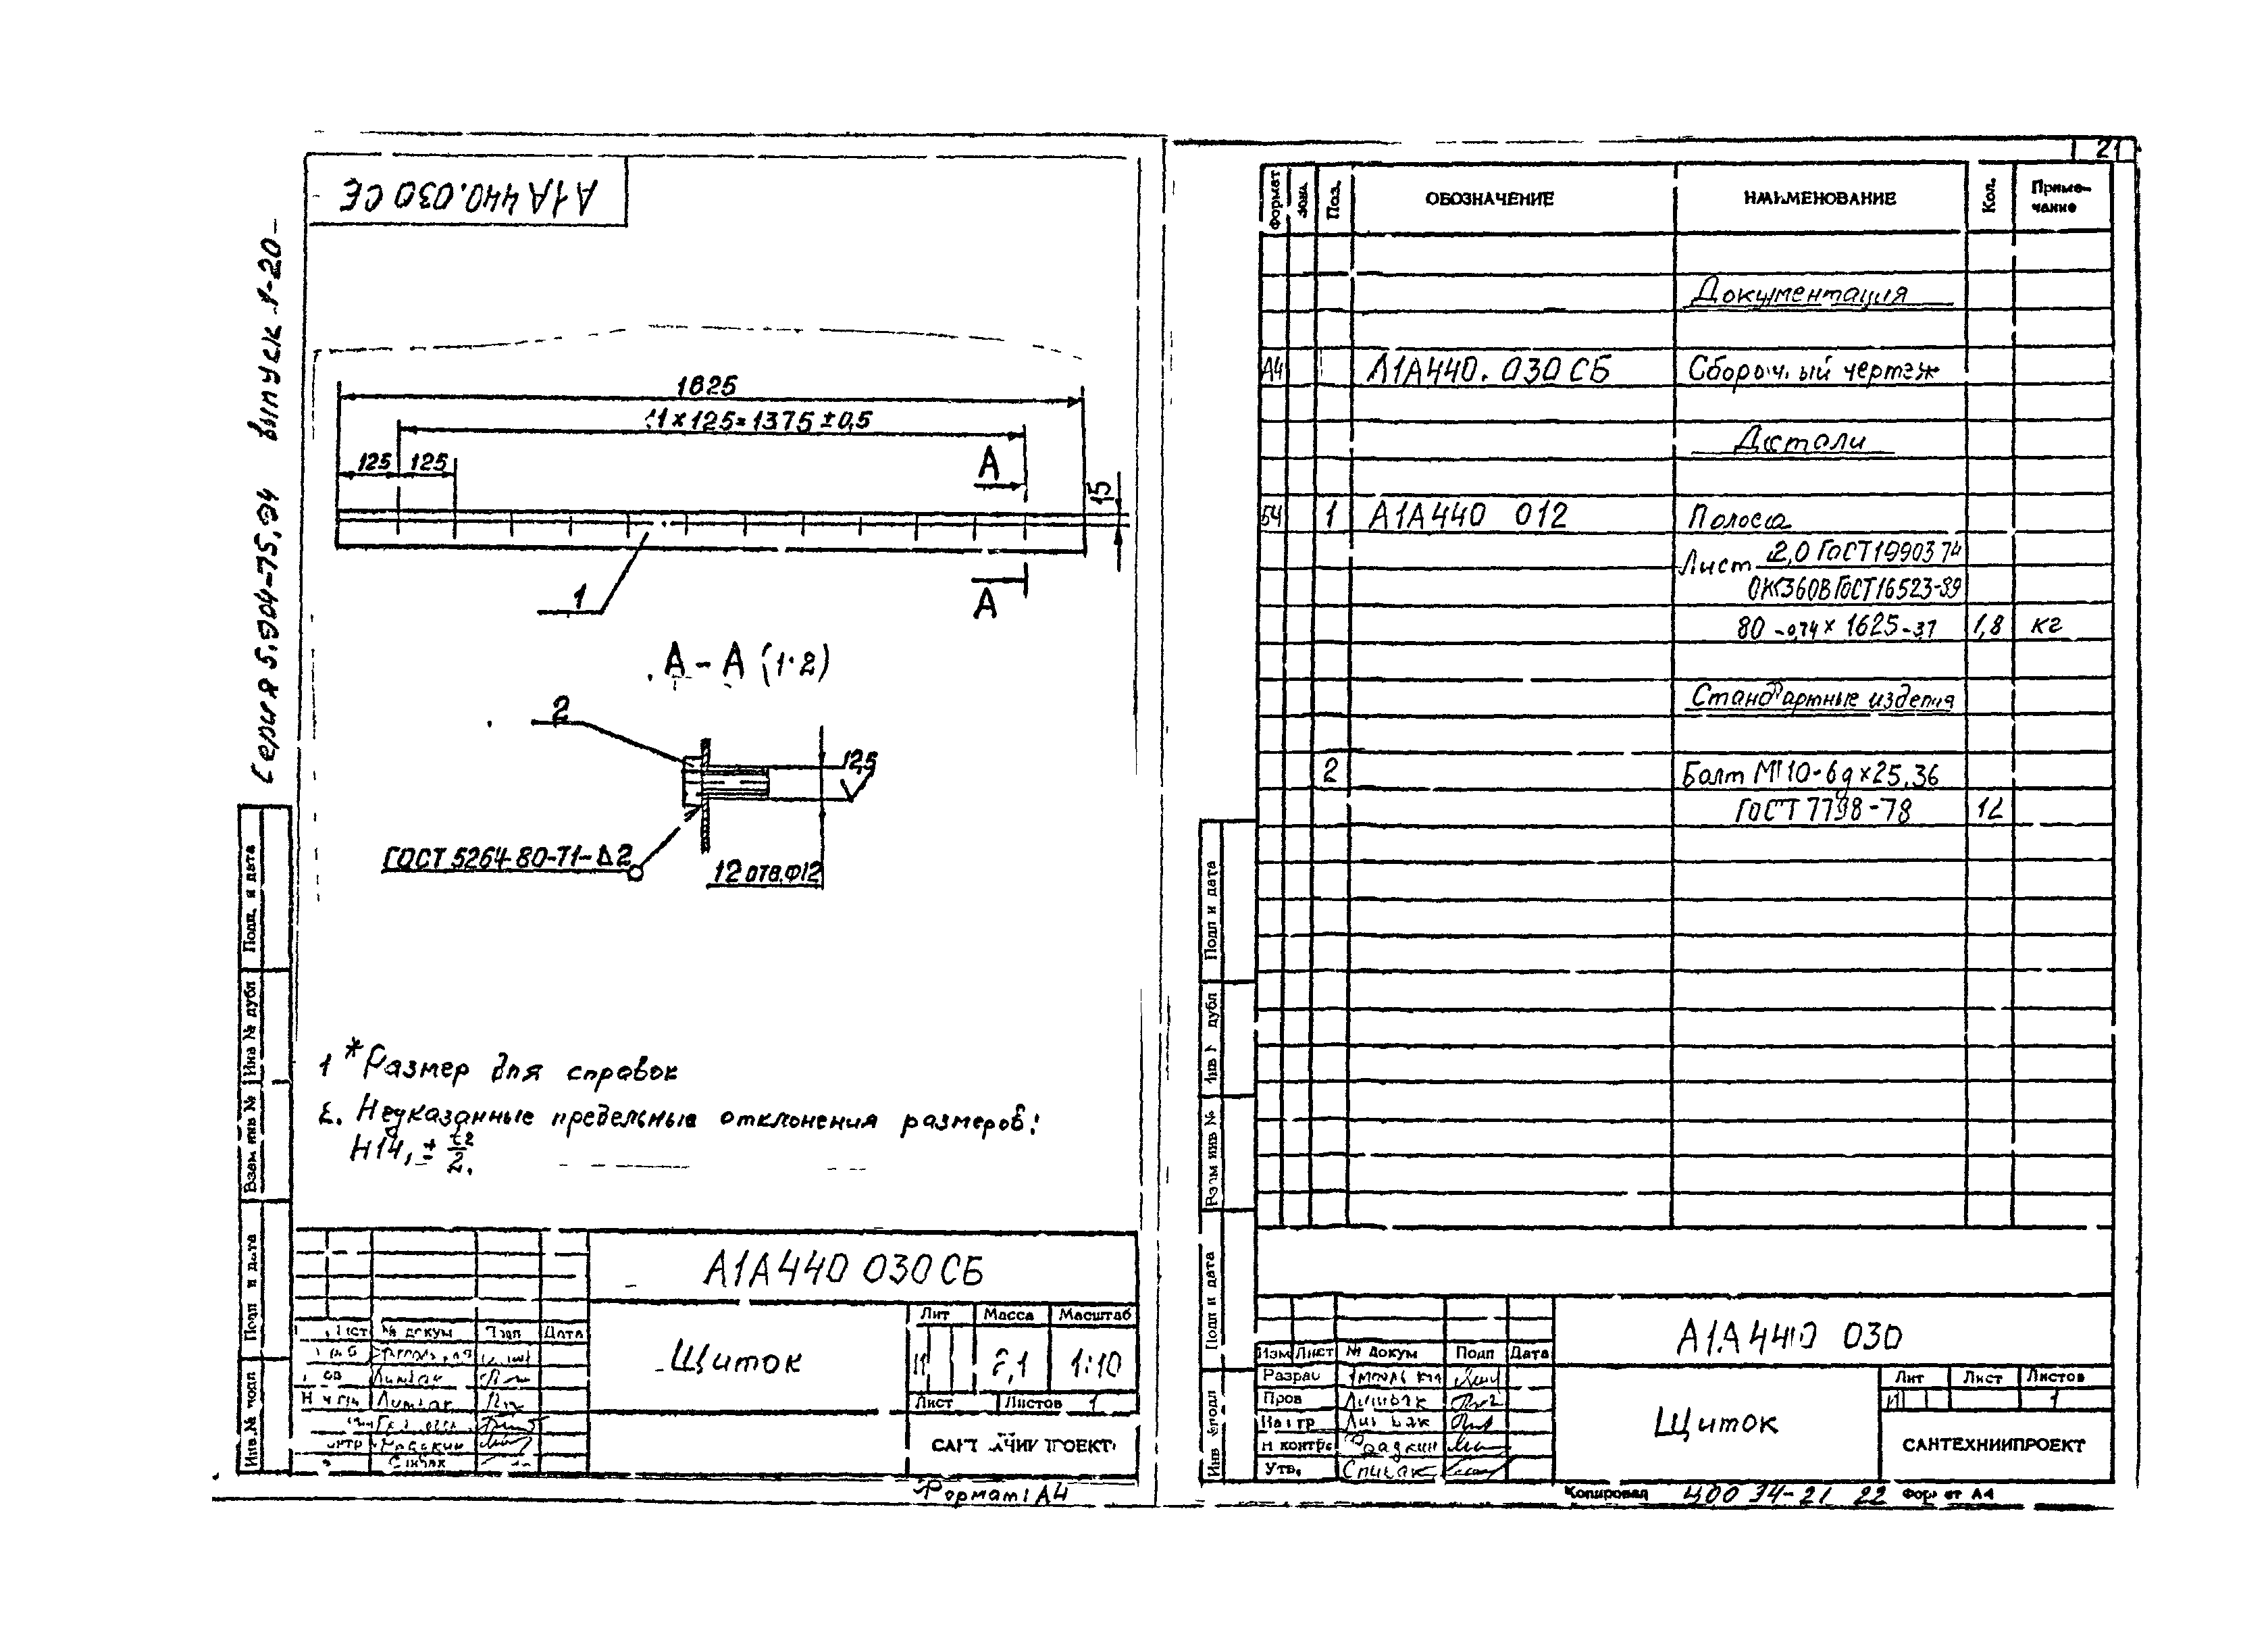 А1А440.030 СБ
Серия 5.904-75.94 выпуск 1-20
1625
11×125=1375±0,5
125 125
А
15
1
А
А-А (1:2)
2
12,5
ГОСТ 5264-80-Т1-Δ2
12 отв.Φ12
1 *Размер для справок
2. Неуказанные предельные отклонения размеров:
Н14, ± t2/2.
Подп. и дата
Инв № дубл
Взам инв №
Подп и дата
Инв.№ подп
А1А440 030 СБ
Щиток
Лит Масса Масштаб
И 2,1 1:10
Лист Листов 1
Лист № докум Подп Дата
Формат А4
21
Формат Зона Поз. ОБОЗНАЧЕНИЕ НАИМЕНОВАНИЕ Кол. Приме-
чание
Документация
А4 А1А440.030 СБ Сборочный чертеж
Детали
Б4 1 А1А440 012 Полоса
Лист 2,0 ГОСТ 19903 74
ОК360В ГОСТ 16523-89
80 -0,74 × 1625 -3,7 1,8 кг
Стандартные изделия
2 Болт М10-6g×25.36
ГОСТ 7798-78 12
Подп и дата
Инв № дубл
Взам инв №
Подп и дата
Инв № подл
А1А440 030
Изм Лист № докум Подп Дата
Разраб
Пров Лившак
Нач гр Лившак
Н контр Фрадкин
Утв. Спивак
Щиток
Лит Лист Листов
И 1
САНТЕХНИИПРОЕКТ
Копировал Ц00 34-21 22 Формат А4